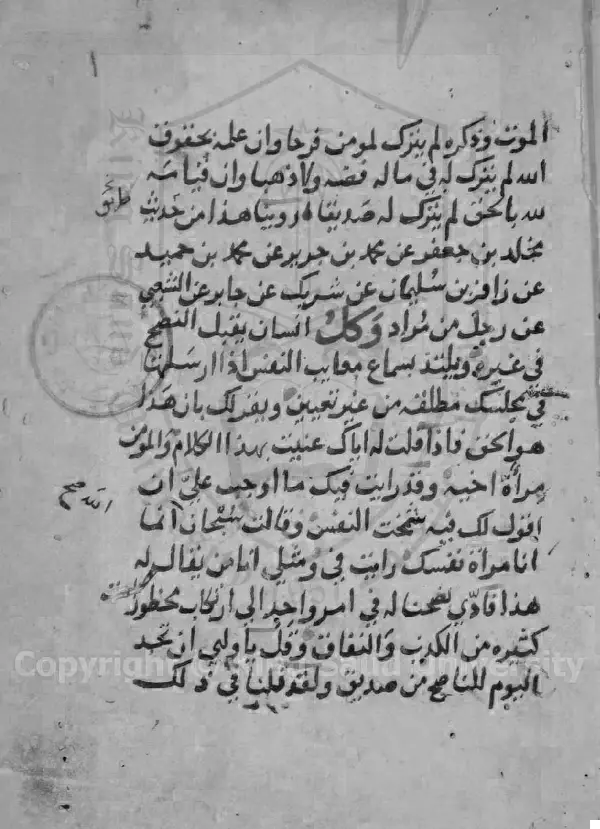 الموت وذكره لم يترك لمومن فرحا وان علمه بحقوق
الله لم يترك له في ماله فضه ولا ذهبا وان قيامه
لله بالحق لم يترك له صديقا روينا هذا من حديث
مخلد بن جعفر عن محمد بن جرير عن محمد بن حميد
عن زافر بن سلمان عن شريك عن جابر عن الشعبي
عن رجل من مراد وكل انسان يقبل النصح
في غيره ويلتذ بسماع معايب النفس اذا ارسلتها
في مجلسك مطلقه من غير تعيين ويقر لك بان هذا
هو الحق فاذا قلت له اياك عنيت بهذا الكلام والمومن
مراة اخيه وقد رايت فيك ما اوجب علي ان
اقول لك فيه شمخت النفس وقالت سبحان
انا مراة نفسك رايت في ومثلي انا من يقال له
هذا فادي نصحنا له في امر واحد الى ارتكاب محظورات
كثيره من الكذب والنفاق وقل يا وليي ان تجد
اليوم للناصح من صديق ولقد قلنا في ذلك
الله صح
Copyright © King Saud University